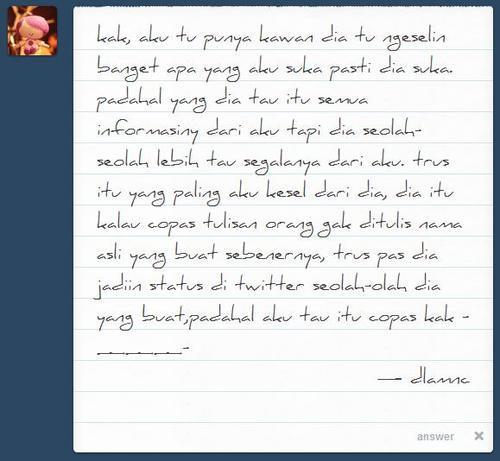 kak, aku tu punya kawan dia tu ngeselin
banget apa yang aku suka pasti dia suka.
padahal yang dia tau itu semua
informasiny dari aku tapi dia seolah-
seolah lebih tau segalanya dari aku. trus
itu yang paling aku kesel dari dia, dia itu
kalau copas tulisan orang gak ditulis nama
asli yang buat sebenernya, trus pas dia
jadiin status di twitter seolah-olah dia
yang buat,padahal aku tau itu copas kak -
_____._____._____-
— dlanna
answer ×